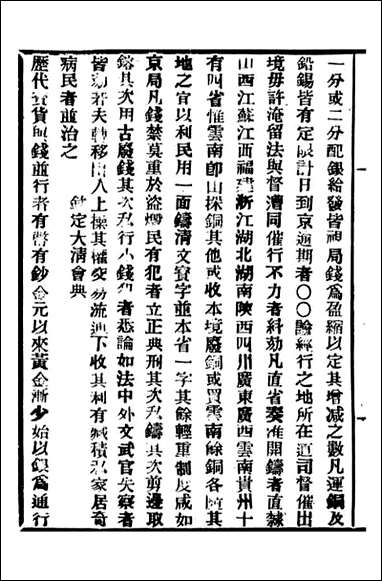 一分或二分配銀給發皆視局錢爲盈縮以定其增减之數凡運銅及
鉛錫皆有定限計日到京逾期者〇〇論經行之地所在道司督催出
境毋許淹留法與督漕同催行不力者糾劾凡直省奏准開鑄者直隸
山西江蘇江西福建浙江湖北湖南陝西四川廣東廣西雲南貴州十
有四省惟雲南卽山採銅其他或收本境廢銅或買雲南餘銅各隨其
地之宜以利民用一面鑄清文寳字並本省一字其餘輕重制度咸如
京局凡錢禁莫重於盜燬民有犯者立正典刑其次私鑄其次剪邊取
鎔其次用古廢錢其次私行小錢犯者悉論如法中外文武官失察者
皆劾若夫轉移出入上操其權交易流通下收其利有臧積私家居奇
病民者並治之
欽定大清會典
歷代寳貨與錢並行者有幣有鈔金元以來黃金漸少始以銀爲通行